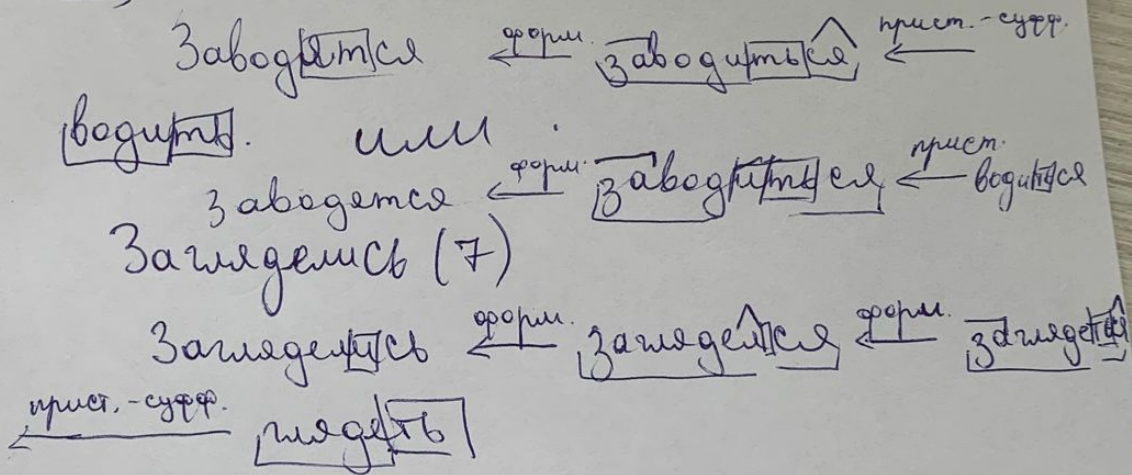 Заводятся ← форм. заводиться ← прист.-суфф.
водить. или
заводятся ← форм. заводиться ← прист. водиться
Загляделись (7)
Загляделись ← форм. загляделся ← форм. заглядеться
← прист.-суфф. глядеть